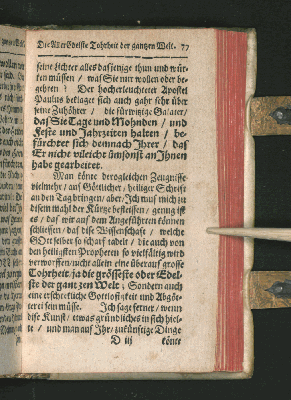 Die AllerEdelste Tohrheit der gantzen Welt. 77
seine tichter alles dasjenige thun und wür-
ken müssen / was Sie nur wollen oder be-
gehren? Der hocherleuchteter Apostel
Paulus beklaget sich auch gahr sehr über
seine Zuhörer / die fürwitzige Galater /
daß Sie Tage und Mohnden / und
Feste und Jahrzeiten halten / be-
fürchtet sich demnach Ihrer / daß
Er nicht vileicht ümsonst an Ihnen
habe gearbeitet.
Man könte derogleichen Zeugnisse
vielmehr / auß Göttlicher / heiliger Schrift
an den Tag bringen / aber Ich muß mich zu
disem mahl der Kürtze befleissen / genug ist
es / daß wir auß dem Angeführten können
schliessen / daß dise Wissenschaft / welche
GOtt selber so scharf tadelt / die auch von
den heiligsten Propheten so vielfältig wird
verworffen / nicht allein eine überauß grosse
Tohrheit, ja die grösseste oder Edel-
ste der gantzen Welt; Sondern auch
eine erschrekliche Gottlosigkeit und Abgöt-
terei sein müsse. Ich sage ferner / wenn
dise Kunst / etwas gründliches in sich hiel-
te / und man auf Ihr / zukünftige Dinge
D iij könte